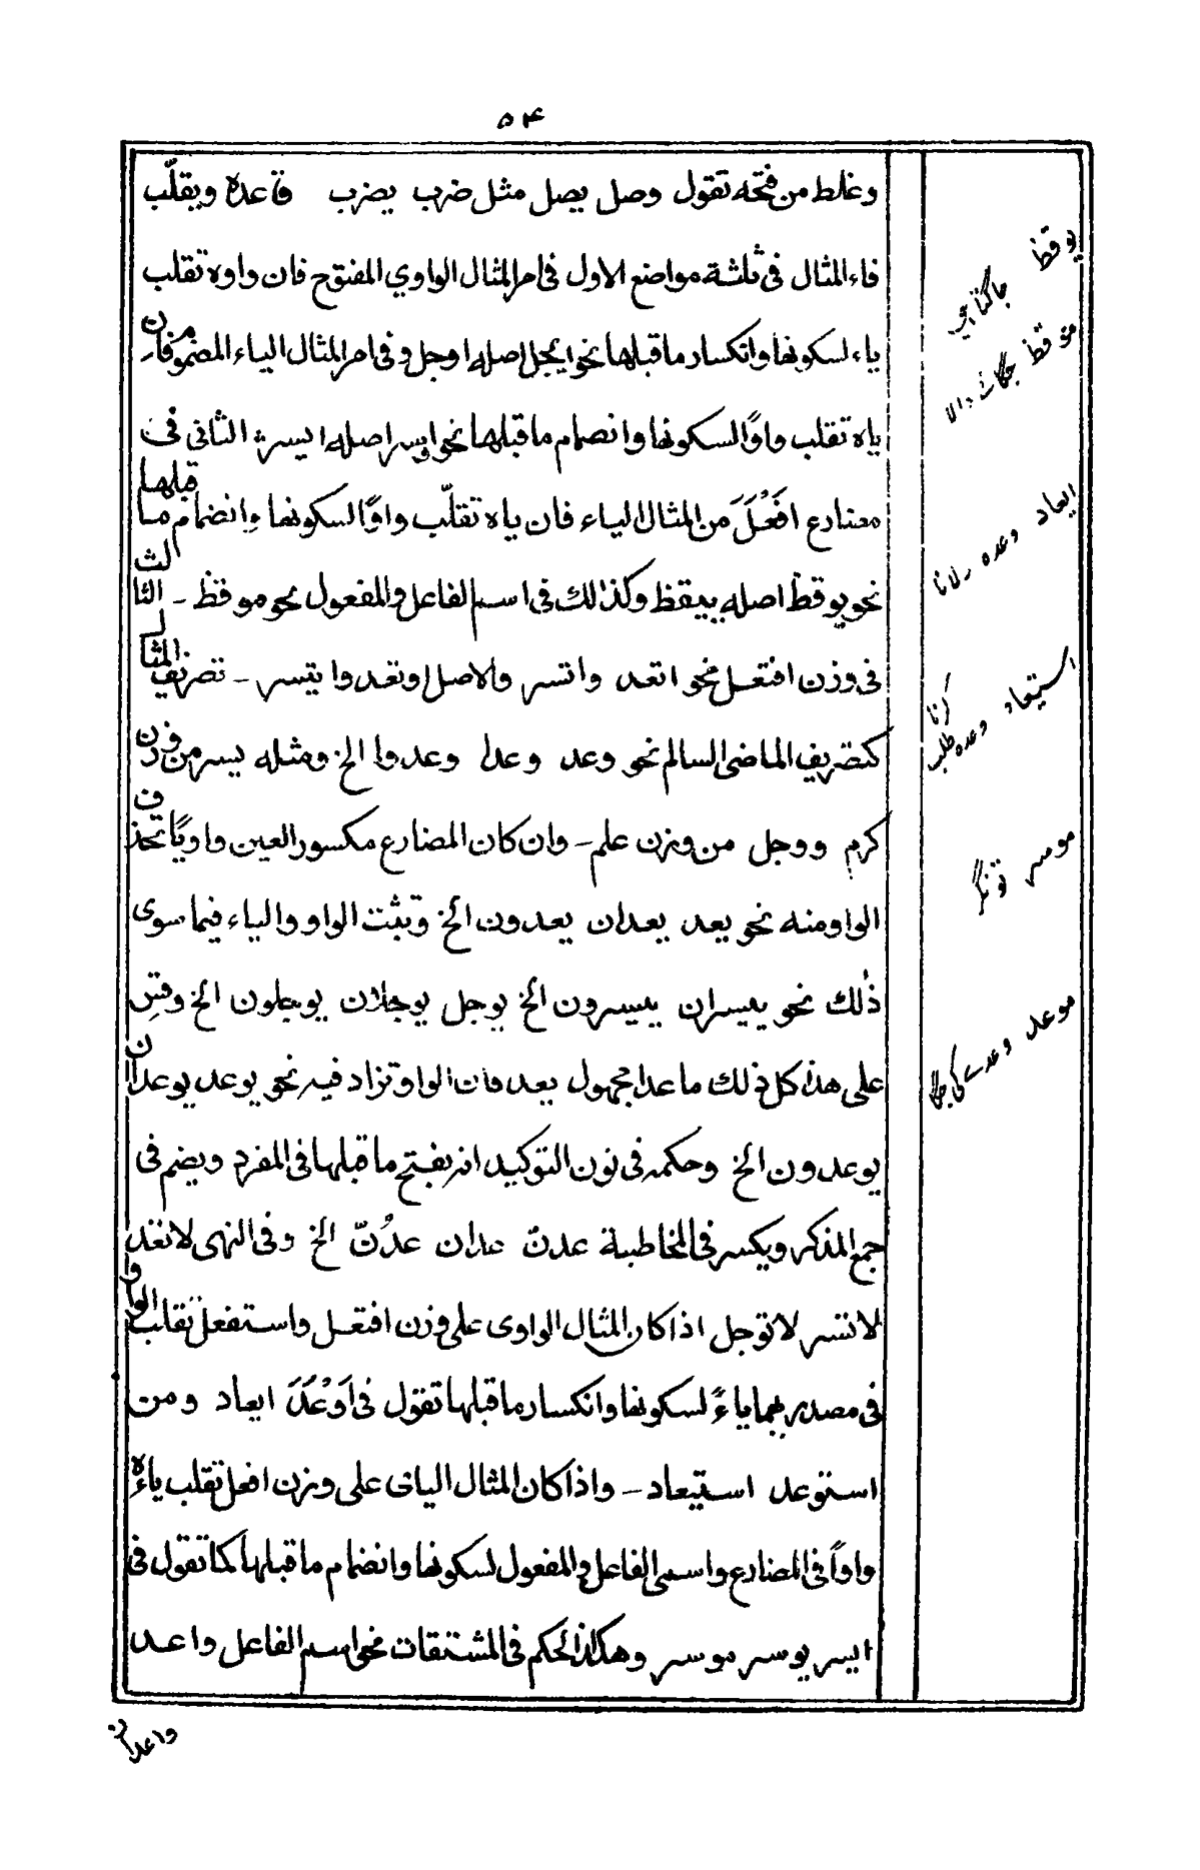 ۵۴
وغلط من فتحه تقول وصل يصل مثل ضرب يضرب قاعدة ويقلّب
فاء المثال فى ثلثة مواضع الاول فى امر المثال الواوي المفتوح فان واوه تقلب
ياء لسكونها وانكسار ما قبلها نحو ايجل اصله اوجل وفى امر المثال الياء المضموم فان
ياه تقلب واوًا لسكونها وانضمام ما قبلها نحو اوسر اصله ايسر الثانى فى
مضارع افْعَلَ من المثال الياء فان ياه تقلّب واوًا لسكونها وانضمام ما قبلها
نحو يوقظ اصله ييقظ وكذالك فى اسم الفاعل والمفعول نحو موقظ ـ الثالث
فى وزن افتعل نحو اتعد واتسر والاصل اوتعد وايتسر ـ تصريف المثال
كتصريف الماضى السالم نحو وعد وعدا وعدوا الخ ومثله يسر من وزن
كرم ووجل من وزن علم ـ وان كان المضارع مكسور العين واويًا تحذف
الواو منه نحو يعد يعدان يعدون الخ وتثبت الواو والياء فيما سوى
ذٰلك نحو ييسر ييسران ييسرون الخ يوجل يوجلان يوجلون الخ وقس
على هذا كل ذلك ما عدا مجهول يعد فان الواو تزاد فيه نحو يوعد يوعدان
يوعدون الخ وحكمه فى نون التوكيد انه يفتح ما قبلها فى المفرد ويضم فى
جمع المذكر ويكسر فى المخاطبة عدنّ عدان عدُنّ الخ وفى النهى لا تعد
لا تيسر لا توجل اذا كان المثال الواوى على وزن افتعل واستفعل تقلب الواو
فى مصدريهما ياءً لسكونها وانكسار ما قبلها تقول فى اَوْعَدَ ايعاد ومن
استوعد استيعاد ـ واذا كان المثال اليائى على وزن افعل تقلب ياءه
واوًا فى المضارع واسمى الفاعل والمفعول لسكونها وانضمام ما قبلها كما تقول فى
ايسر يوسر موسر وهكذا الحكم فى المشتقات نحو اسم الفاعل واعد
واعدان
يوقظ جاگتا ہے
موقظ جگانے والا
ايعاد وعده دلانا
استيعاد وعده طلب کرنا
موسر تونگر
موعد وعدے کی جگہ